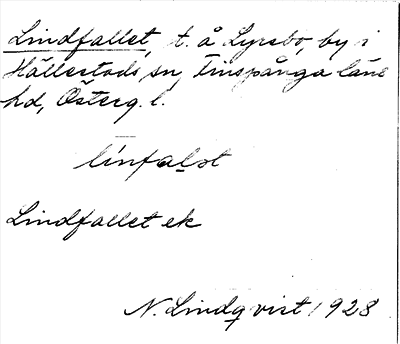 Lindfallet, t. å Lyrebo, by i
Hällestads sn, Finspånga läns
hd, Österg. l.
línfalət
Lindfallet ek
N. Lindqvist 1928